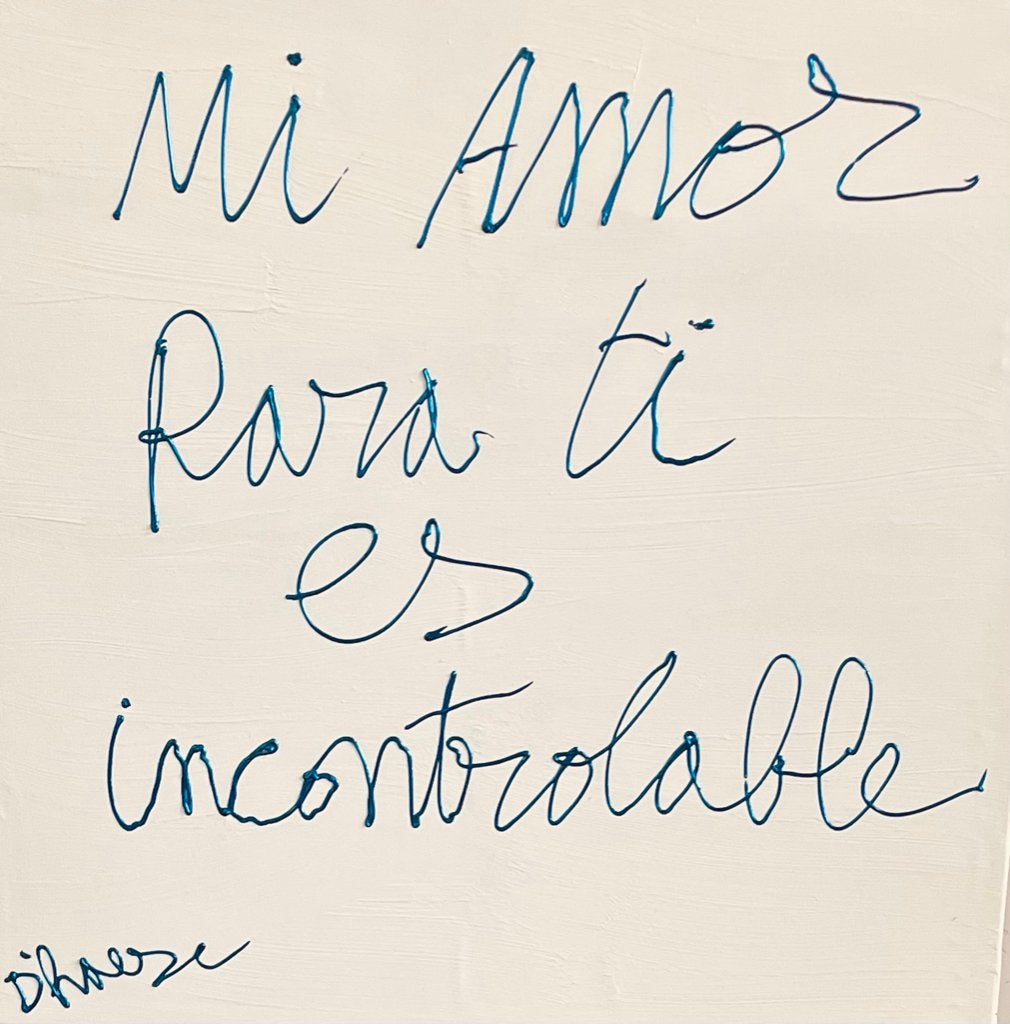 Mi Amor
Para ti
es
incontrolable